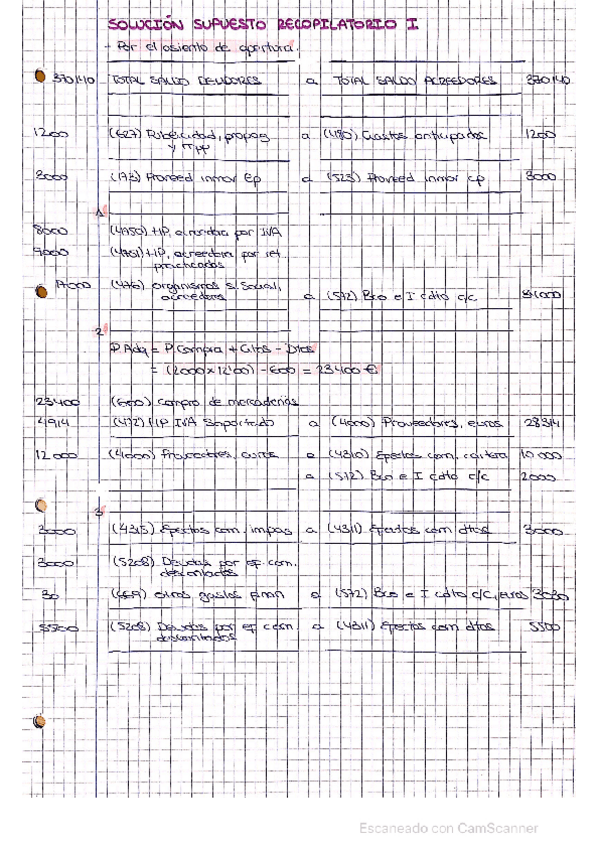 SOLUCIÓN SUPUESTO RECOPILATORIO I
- Por el asiento de apertura.
370140 TOTAL SALDO DEUDORES a TOTAL SALDO ACREEDORES 370140
1200 (627) Publicidad, propag a (480) Gastos anticipados 1200
y rrpp
3000 (173) Proveed inmov lp a (523) Proveed inmov cp 3000
1
8000 (4750) HP, acreedora por IVA
9000 (4751) HP, acreedora por ret.
practicadas
17000 (476) organismos S. Social,
acreedora a (572) Bco e I cdto c/c
2
P Adq = P Compra + Gtos - Dtos
= (2000x12'00) - 600 = 23400 €
23400 (600) Compra de mercaderías
4914 (472) HP IVA Soportado a (4000) Proveedores, euros 28314
12000 (4000) Proveedores, euros a (4310) Efectos com. cartera 10000
a (572) Bco e I cdto c/c 2000
3
3000 (4315) Efectos com. impag a (4311) Efectos com dtos 3000
3000 (5208) Deudas por ef. com.
descontados
30 (669) Otros gastos finan a (572) Bco e I cdto c/c, euros 3030
5500 (5208) Deudas por ef com. a (4311) Efectos com dtos 5500
descontados
Escaneado con CamScanner